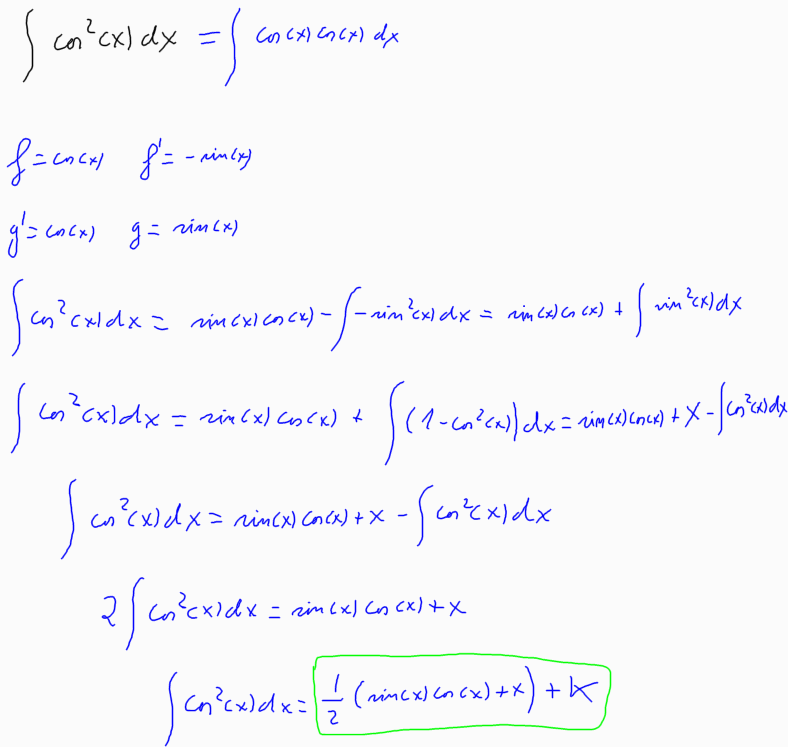 ∫ cos²(x) dx = ∫ cos(x) cos(x) dx
f = cos(x) f' = -sin(x)
g' = cos(x) g = sin(x)
∫ cos²(x) dx = sin(x) cos(x) - ∫ -sin²(x) dx = sin(x) cos(x) + ∫ sin²(x) dx
∫ cos²(x) dx = sin(x) cos(x) + ∫ (1 - cos²(x)) dx = sin(x) cos(x) + x - ∫ cos²(x) dx
∫ cos²(x) dx = sin(x) cos(x) + x - ∫ cos²(x) dx
2 ∫ cos²(x) dx = sin(x) cos(x) + x
∫ cos²(x) dx = 1/2 (sin(x) cos(x) + x) + K